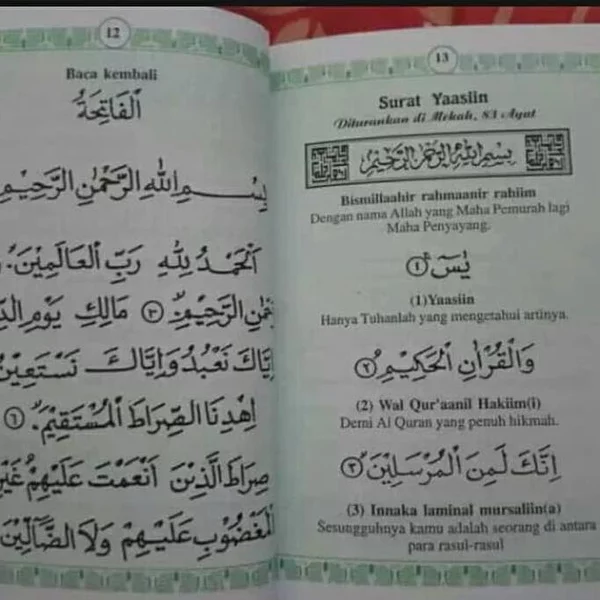 12
Baca kembali
الْفَاتِحَةُ
بِسْمِ اللهِ الرَّحْمٰنِ الرَّحِيْمِ
اَلْحَمْدُ لِلّٰهِ رَبِّ الْعَالَمِيْنَ.
الرَّحِيْمِ ۙ ﴿٣﴾ مَالِكِ يَوْمِ
اِيَّاكَ نَعْبُدُ وَاِيَّاكَ نَسْتَعِيْنُ
اِهْدِنَا الصِّرَاطَ الْمُسْتَقِيْمَ ۙ
صِرَاطَ الَّذِيْنَ اَنْعَمْتَ عَلَيْهِمْ غَيْرِ
الْمَغْضُوْبِ عَلَيْهِمْ وَلَا الضَّآلِّيْنَ
13
Surat Yaasiin
Diturunkan di Mekah, 83 Ayat
بِسْمِ اللهِ الرَّحْمٰنِ الرَّحِيْمِ
Bismillaahir rahmaanir rahiim
Dengan nama Allah yang Maha Pemurah lagi
Maha Penyayang.
يٰسٓ ۚ ﴿١﴾
(1)Yaasiin
Hanya Tuhanlah yang mengetahui artinya.
وَالْقُرْاٰنِ الْحَكِيْمِ ۙ ﴿٢﴾
(2) Wal Qur'aanil Hakiim(i)
Demi Al Quran yang penuh hikmah.
اِنَّكَ لَمِنَ الْمُرْسَلِيْنَ ۙ ﴿٣﴾
(3) Innaka laminal mursaliin(a)
Sesungguhnya kamu adalah seorang di antara
para rasul-rasul